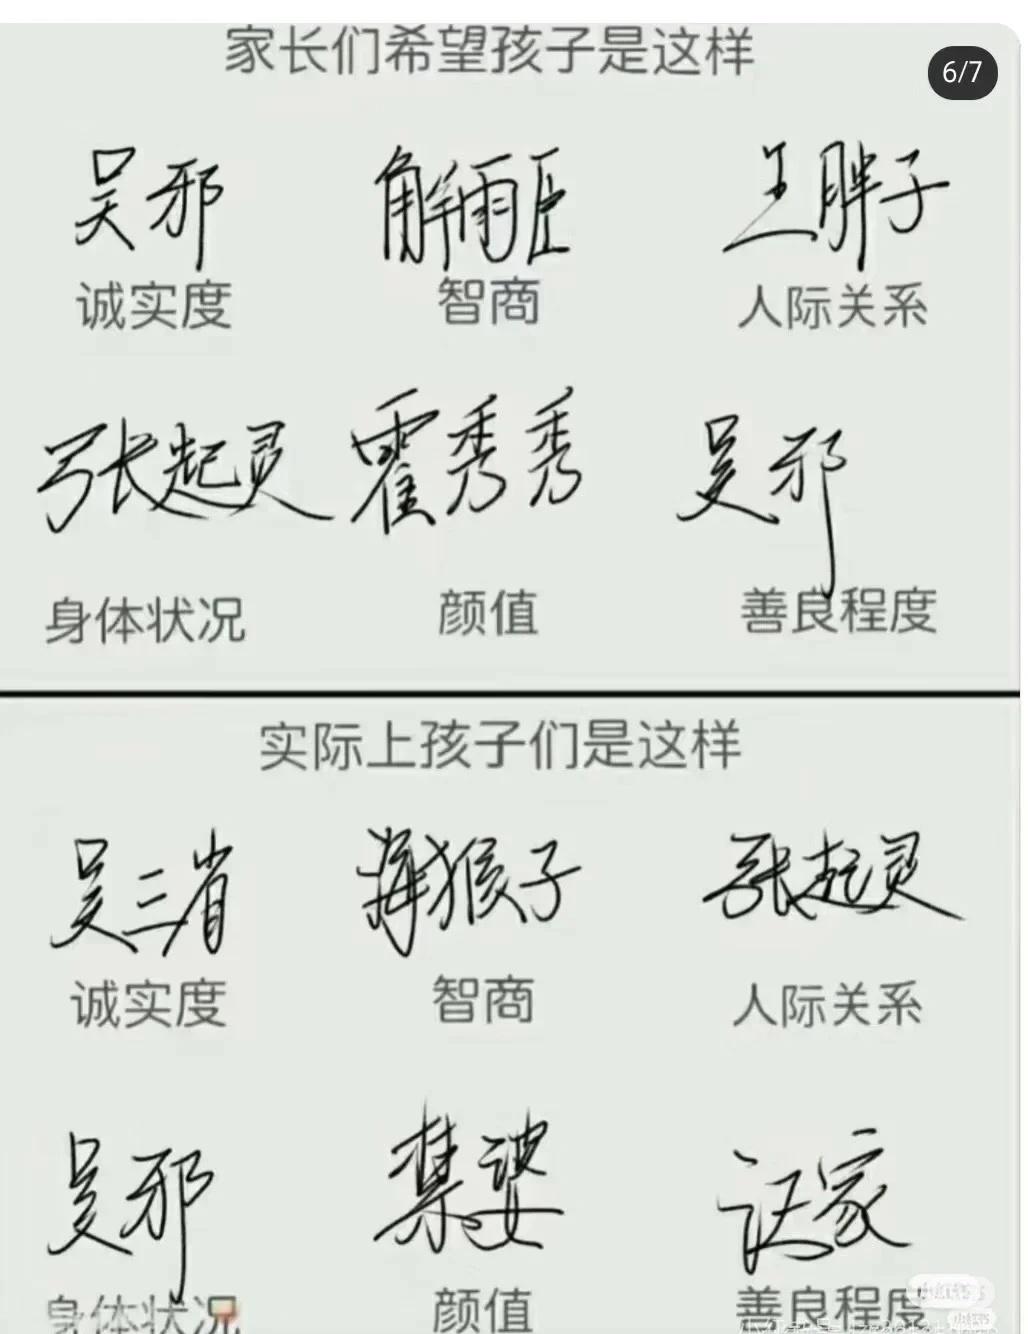 家长们希望孩子是这样
6/7
吴邪 解雨臣 王胖子
诚实度 智商 人际关系
张起灵 霍秀秀 吴邪
身体状况 颜值 善良程度
实际上孩子们是这样
吴三省 海猴子 张起灵
诚实度 智商 人际关系
吴邪 禁婆 汪家
身体状况 颜值 善良程度
小红书